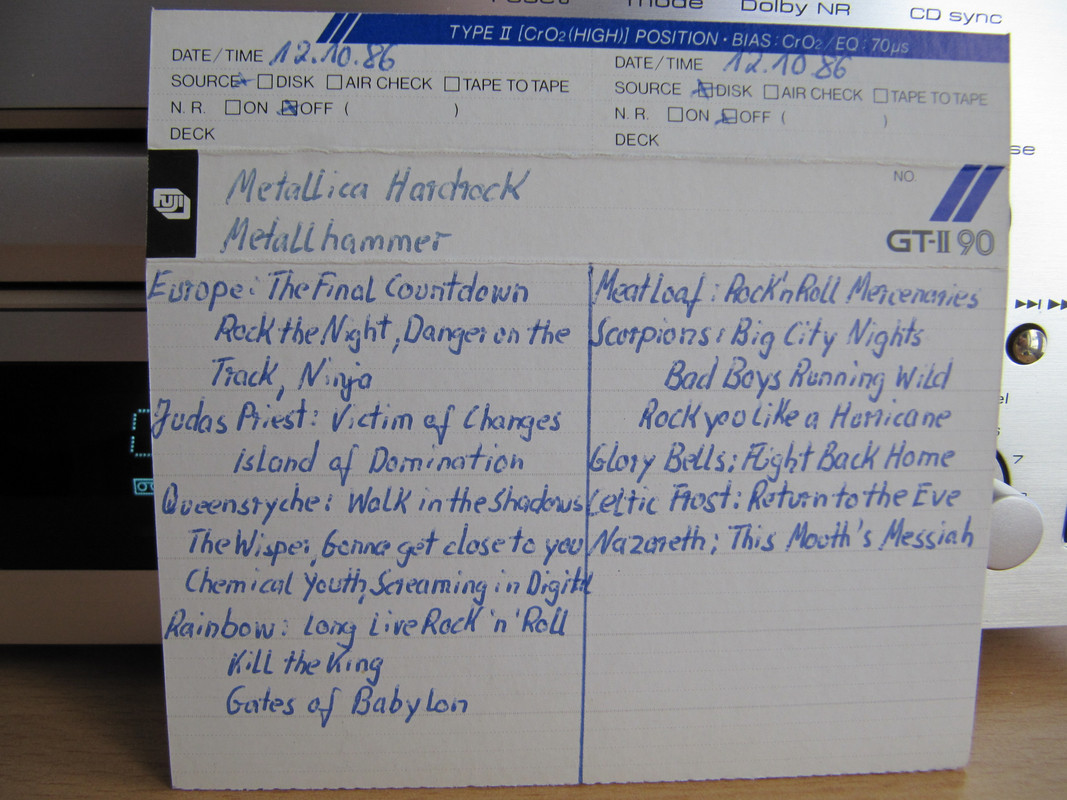 Dolby NR
CD sync
TYPE II [CrO2(HIGH)] POSITION · BIAS: CrO2/EQ: 70μs
DATE/TIME 12.10.86
SOURCE DISK AIR CHECK TAPE TO TAPE
N. R. ON OFF ( )
DECK
DATE/TIME 12.10 86
SOURCE DISK AIR CHECK TAPE TO TAPE
N. R. ON OFF ( )
DECK
FUJI
Metallica Hardrock
Metallhammer
NO.
GT-II 90
Europe: The Final Countdown
Rock the Night, Danger on the
Track, Ninja
Judas Priest: Victim of Changes
island of Domination
Queensryche: Walk in the Shadows
The Wisper, Gonna get close to you
Chemical Youth, Screaming in Digital
Rainbow: Long Live Rock 'n' Roll
Kill the King
Gates of Babylon
Meat Loaf: Rock'n Roll Mercenaries
Scorpions: Big City Nights
Bad Boys Running Wild
Rock you Like a Hurricane
Glory Bells: Fight Back Home
Celtic Frost: Return to the Eve
Nazareth: This Month's Messiah
7